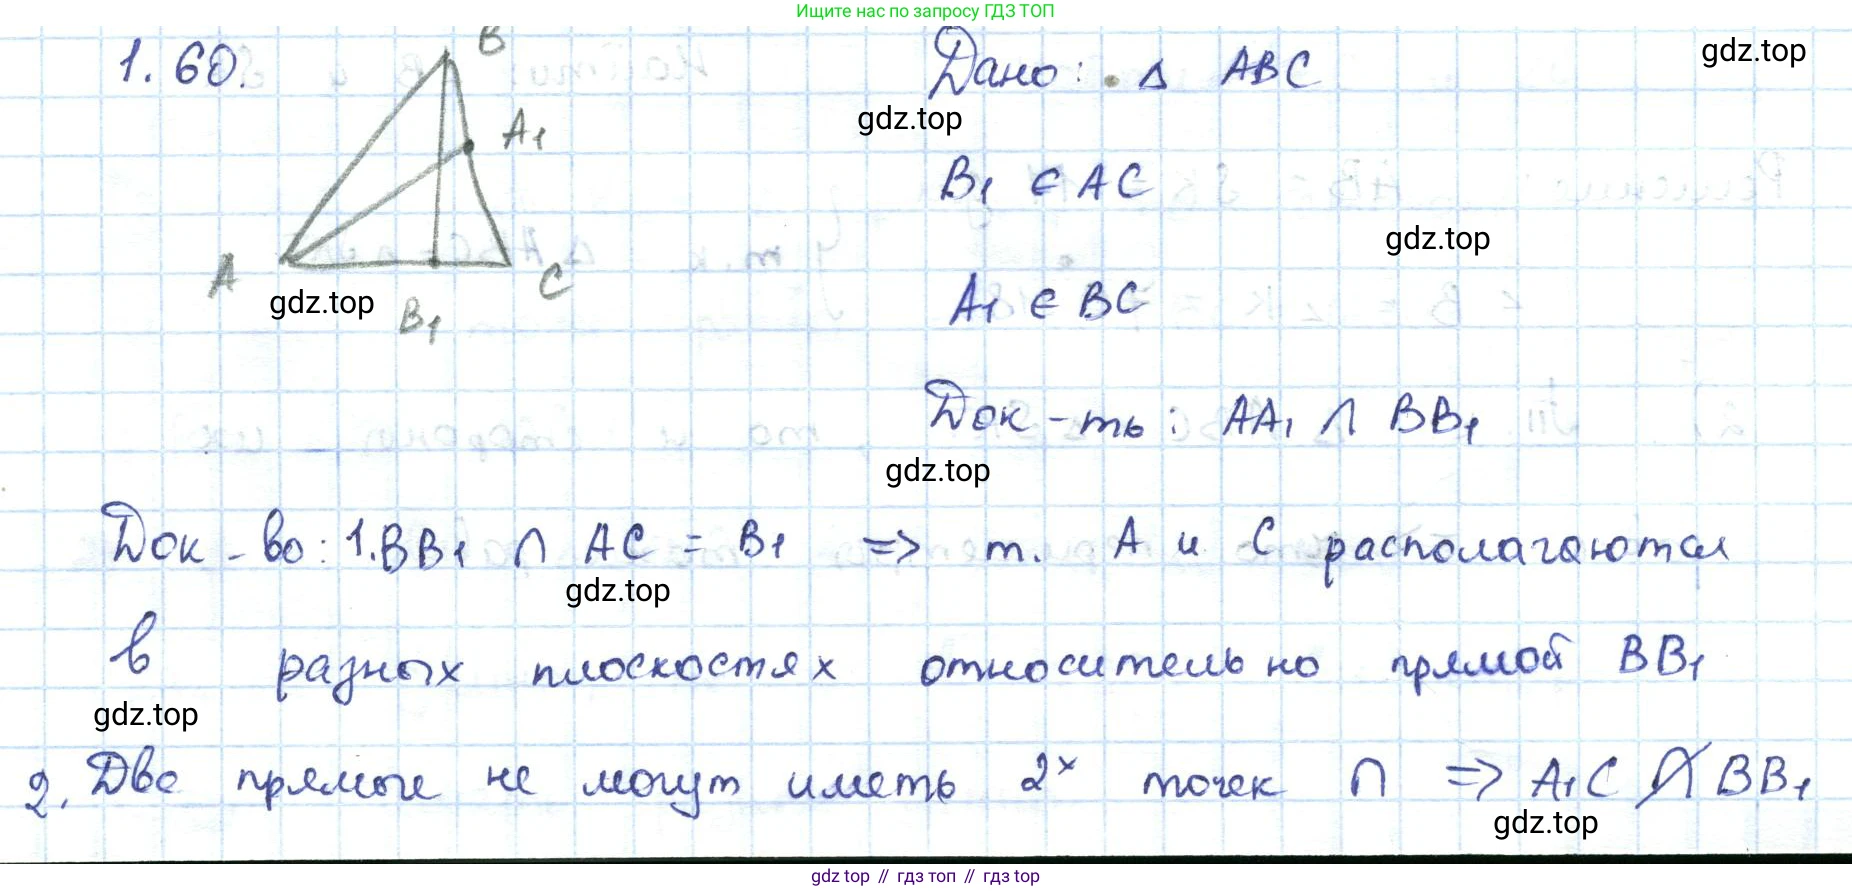 Ищите нас по запросу ГДЗ ТОП
1.60.
B
A₁
A
B₁
C
Дано: Δ ABC
gdz.top
gdz.top
B₁ ∈ AC
gdz.top
A₁ ∈ BC
gdz.top
Док-ть: AA₁ ∩ BB₁
gdz.top
Док-во: 1. BB₁ ∩ AC = B₁ => т. A и C располагаются
gdz.top
в разных плоскостях относительно прямой BB₁
gdz.top
2. Две прямые не могут иметь 2ˣ точек ∩ => A₁C ∩̸ BB₁
gdz.top
gdz top // гдз топ // gdz top